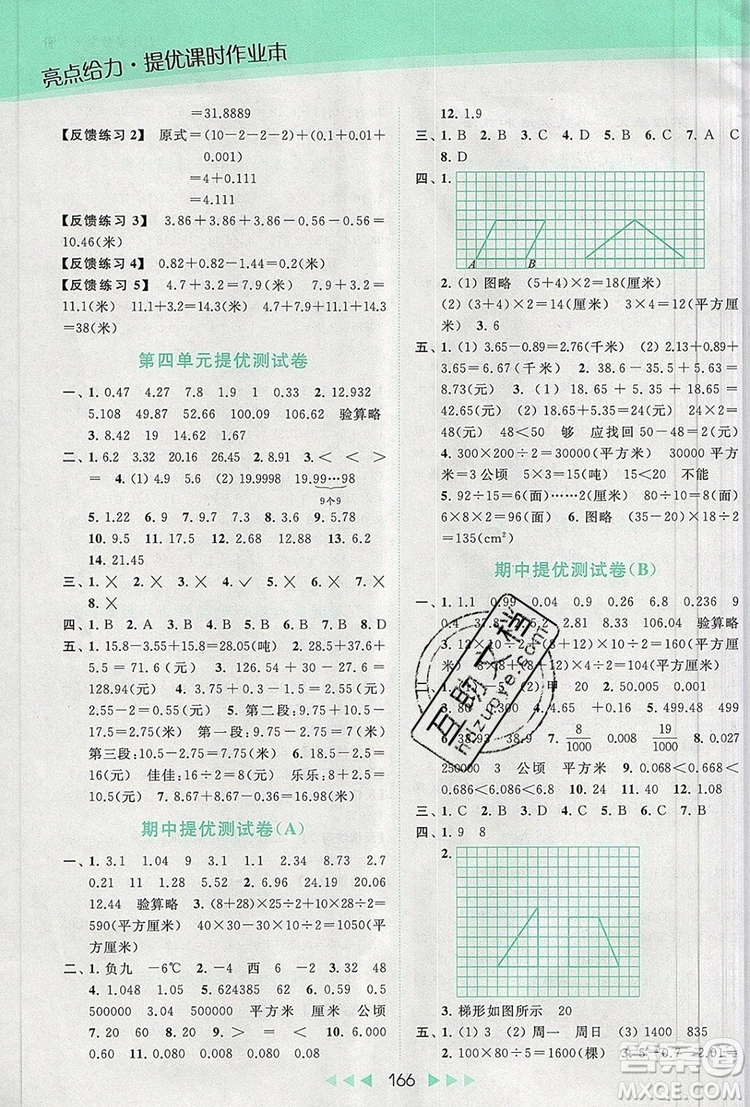 亮点给力·提优课时作业本
=31.8889
【反馈练习2】 原式=(10-2-2-2)+(0.1+0.01+
0.001)
=4+0.111
=4.111
【反馈练习3】 3.86+3.86+3.86-0.56-0.56=
10.46(米)
【反馈练习4】 0.82+0.82-0.2=1.44(米)
【反馈练习5】 4.7+3.2=7.9(米) 7.9+3.2=
11.1(米) 11.1+3.2=14.3(米) 4.7+7.9+11.1+14.3
=38(米)
第四单元提优测试卷
一、1. 0.47 4.27 7.8 1.9 1 0.33 2. 12.932
5.108 49.87 57.95 100.09 106.62 验算略
3. 8.42 14 1.67
二、1. 6.2 3.32 20.16 28.45 2. 8.91 3. < < >
= 4. (1) 9.95 95 (2) 19.9998 19.99…98
9个9
5. 1.22 6. 9 7. 4.1 8. 18.63 37.65 9. 62.3
10. 0.5 11. 17.5 12. 26.85 26.94 13. 6.2
14. 21.45
三、1. × 2. × 3. × 4. × 5. × 6. × 7. ×
8. ×
四、1. B 2. A 3. C 4. B 5. B 6. B 7. B 8. D
五、1. 15.8-3.55+15.8=28.05(元) 2. 35.4+37.6-
1.8=71.2(元) 3. 126.54+30-27.6=
128.94(元) 4. 5.1-2.55=2.55(元)
2.55-0.55=2(元) 5. 第二段:10.5-7.75=
2.75(米) 第一段:7.75-2.75=5(米)
第三段:10.5-2.75=7.75(米) 6. 18.5-2.5=
16(元) 佳佳:16÷2=8(元) 乐乐:8+2.5=
10.5(元) 7. 8.67-8.67÷(10-1)×2=6.74
期中提优测试卷(A)
一、1. 3.1 1.04 9 1.1 1.1 4.54 8.73 2.7
0.21 11 1.58 4.2 2. 9.36 24.09 20.06
12.44 验算略 3. (8+28)×10÷2+28×2×10÷2=
590(平方厘米) 40×30-30×10÷2=1050(平方
厘米)
二、1. 负九 -6℃ 2. -4 西 6 -2 3. 32 48
4. 1.048 1.05 5. 624385 62.4385 62.44 6. 9
500000 500000 平方米 厘米 公顷
7. 20 60 8. > > < = 9. 9 10. 24
0.60 11. 0.86 0.43 0.52 0.59 0.61
12. 1.9
三、1. B 2. B 3. C 4. D 5. B 6. C 7. A C
8. D
四、1.
A B
2. (1) 图略 (5+4)×2=18(厘米)
(2) (3+2)×2=10(厘米) 3×4=12(平方厘
米) 3. 6
五、1. (1) 3.65-0.89=2.76(千米) (2) 2.13+0.89+
3.65=6.67(千米) 2. 38.6+5.35-35.22=
8.73(元) 3. (1) 18.65+5.35+18.65=
42.65(元) (2) 18.65+5.35=24(元) 24×2=
48(元) 48<50 够 应找回50-48=2(元)
4. 300×200÷2=30000(平方米) 30000平方米
=3公顷 5×3=15(吨) 15<20 不能
5. 92÷15=6(面)……2(面) 80÷10=8(面)
6×8×2=96(面) 6. 图略 (35-20)×18÷2
=135(cm²)
期中提优测试卷(B)
一、1. 1.1 0.99 0.04 0.9 6.8 0.6 0.8 9
0.4 验算略
二、2. 50.005 -21
3. 80 4. 4.65 +0.16
38.93 7. 8/1000 0.008 19/1000 0.027
250000 3 公顷 平方米 9. 0.068<0.668<
0.686<0.866<6.086 10. <
三、1. C 2. D 3. C 4. D 5. B 6. B 7. B 8. C
四、1. 9 8
2.
3. 梯形如图所示 20
五、1. (1) 3 (2) 周一 周日 (3) 1400 835
2. 100×80÷2÷5=800(棵)
166
互助文档
hdzuoye.com
答案圈
MXQE.COM